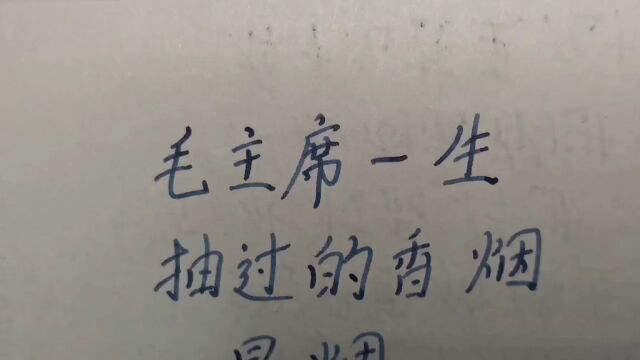 毛主席一生
抽过的香烟